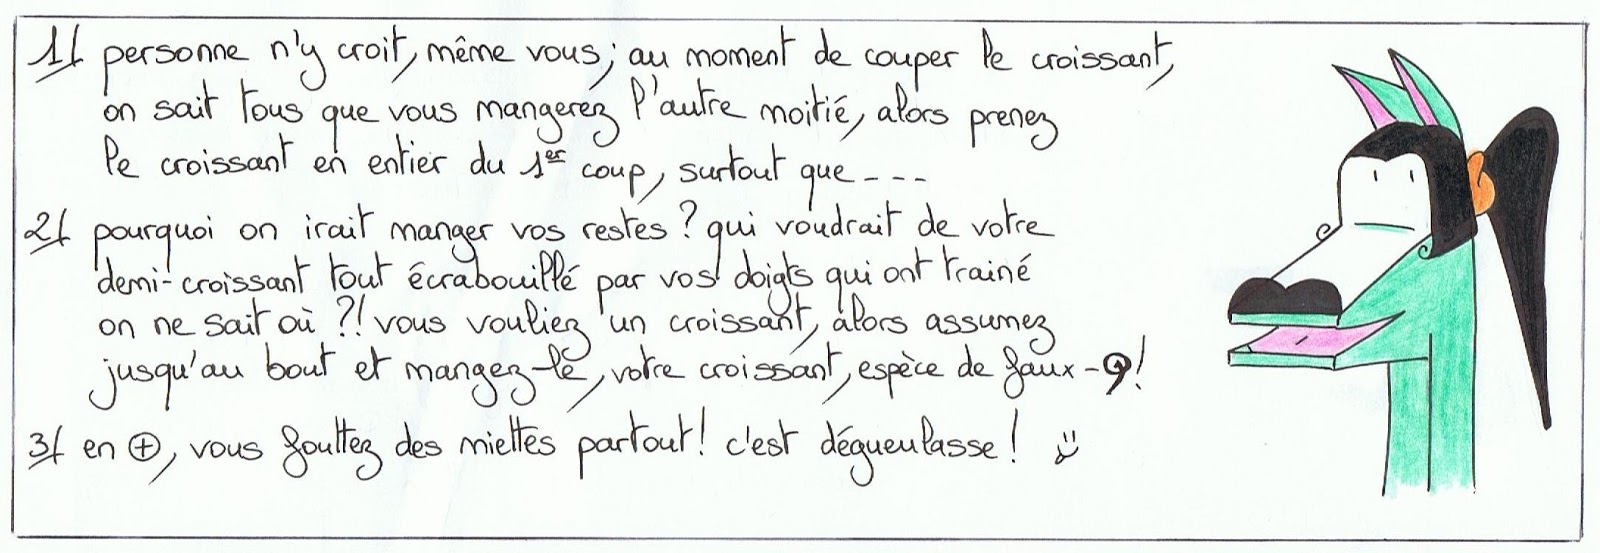 1/ personne n'y croit, même vous; au moment de couper le croissant,
on sait tous que vous mangerez l'autre moitié, alors prenez
le croissant en entier du 1er coup, surtout que ---
2/ pourquoi on irait manger vos restes ? qui voudrait de votre
demi-croissant tout écrabouillé par vos doigts qui ont trainé
on ne sait où ?! vous vouliez un croissant, alors assumez
jusqu'au bout et mangez-le, votre croissant, espèce de faux-9!
3/ en ⊕, vous fouttez des miettes partout! c'est dégueulasse!